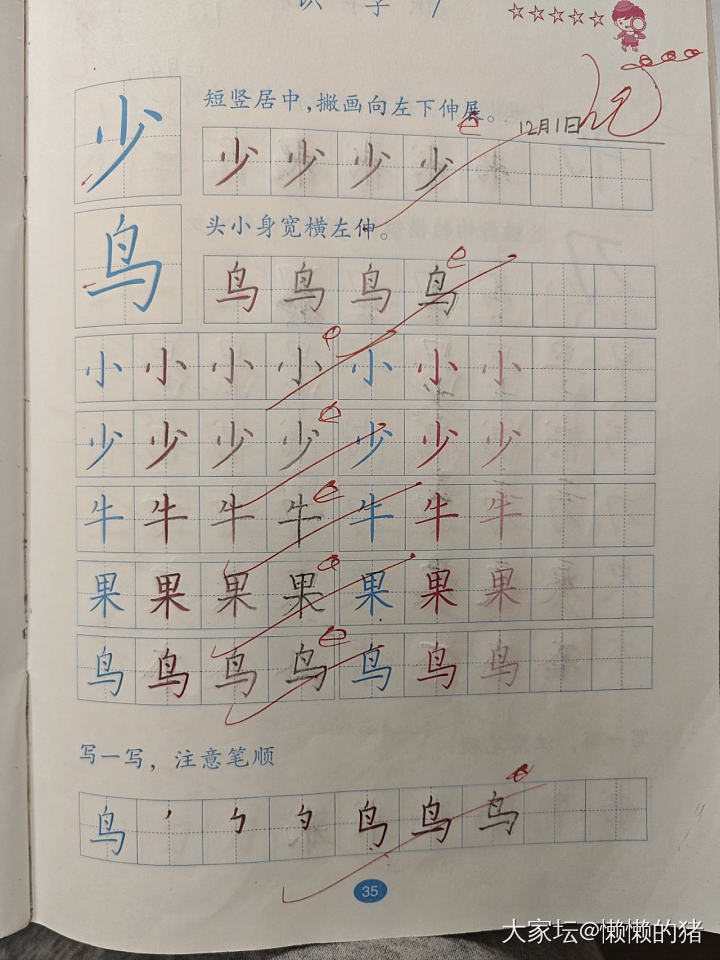 识字7
短竖居中,撇画向左下伸展。
12月1日
少 少 少 少 少
头小身宽横左伸。
鸟 鸟 鸟 鸟 鸟
小 小 小 小 小 小 小
少 少 少 少 少 少 少
牛 牛 牛 牛 牛 牛 牛
果 果 果 果 果 果 果
鸟 鸟 鸟 鸟 鸟 鸟 鸟
写一写，注意笔顺
鸟 鸟 鸟 鸟
35
大家坛@懒懒的猪